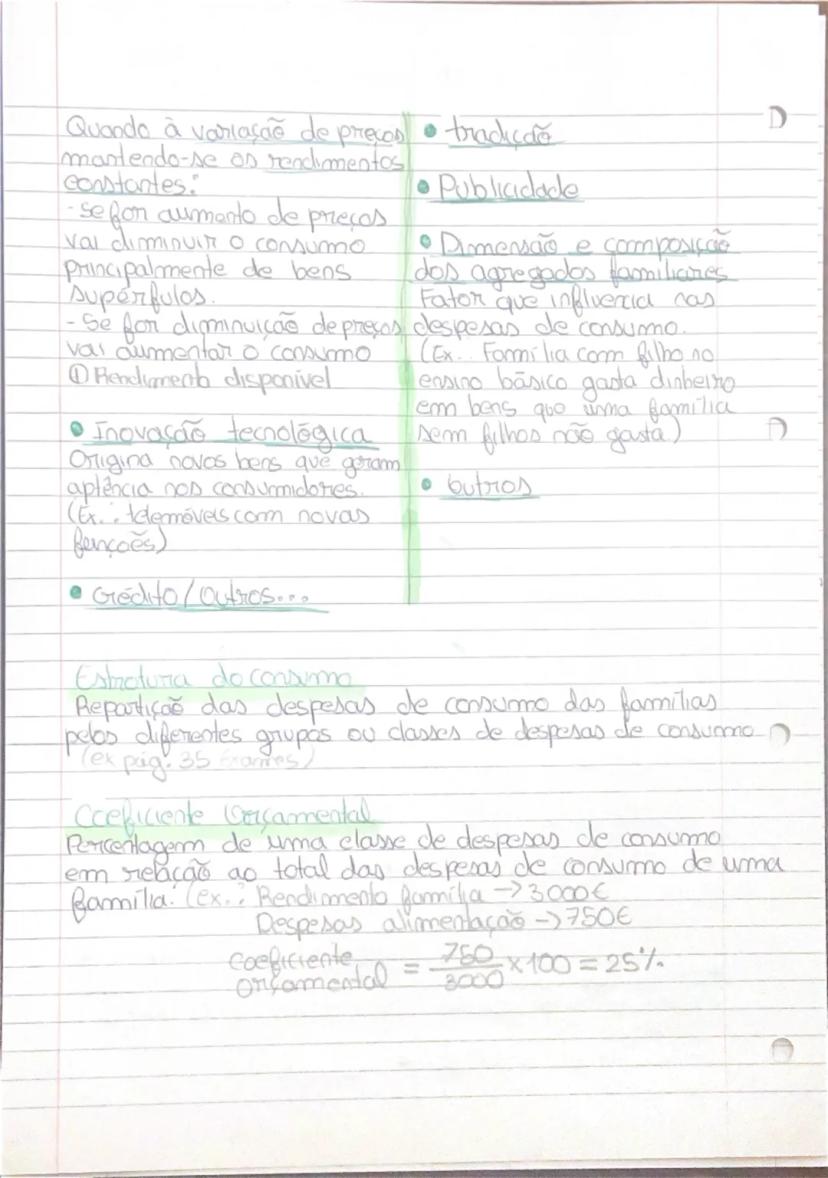 Quando à variação de preços
mantendo-se os rendimentos
constantes:
- Se for aumento de preços
vai diminuir o consumo
principalmente de bens
supérfulos.
- Se for diminuição de preços
vai aumentar o consumo
① Rendimento disponível
• Inovação tecnológica
Origina novos bens que geram
aptência nos consumidores.
(Ex.: telemóveis com novas
funções)
• Crédito/outros...
• tradição
• Publicidade
• Dimensão e composição
dos agregados familiares
Fator que influencia nas
despesas de consumo.
(Ex.: Família com filho no
ensino básico gasta dinheiro
em bens que uma família
sem filhos não gasta)
• outros
Estrutura do consumo
Repartição das despesas de consumo das famílias
pelos diferentes grupos ou classes de despesas de consumo
(ex pág. 35 Exames)
Coeficiente Orçamental
Percentagem de uma classe de despesas de consumo
em relação ao total das despesas de consumo de uma
família. (ex.: Rendimento família -> 3000€
Despesas alimentação -> 750€
Coeficiente orçamental = 750/3000 x 100 = 25%